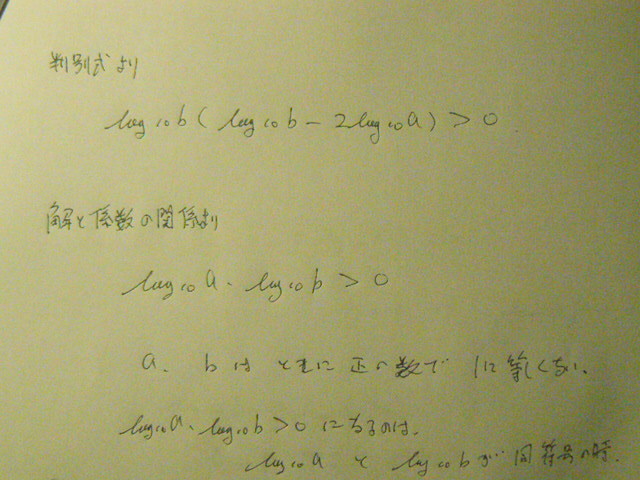 判別式より
log₁₀b ( log₁₀b - 2log₁₀a ) > 0
解と係数の関係より
log₁₀a・log₁₀b > 0
a、bはともに正の数で1に等しくない、
log₁₀a・log₁₀b>0になるのは、
log₁₀aとlog₁₀bが同符号の時.